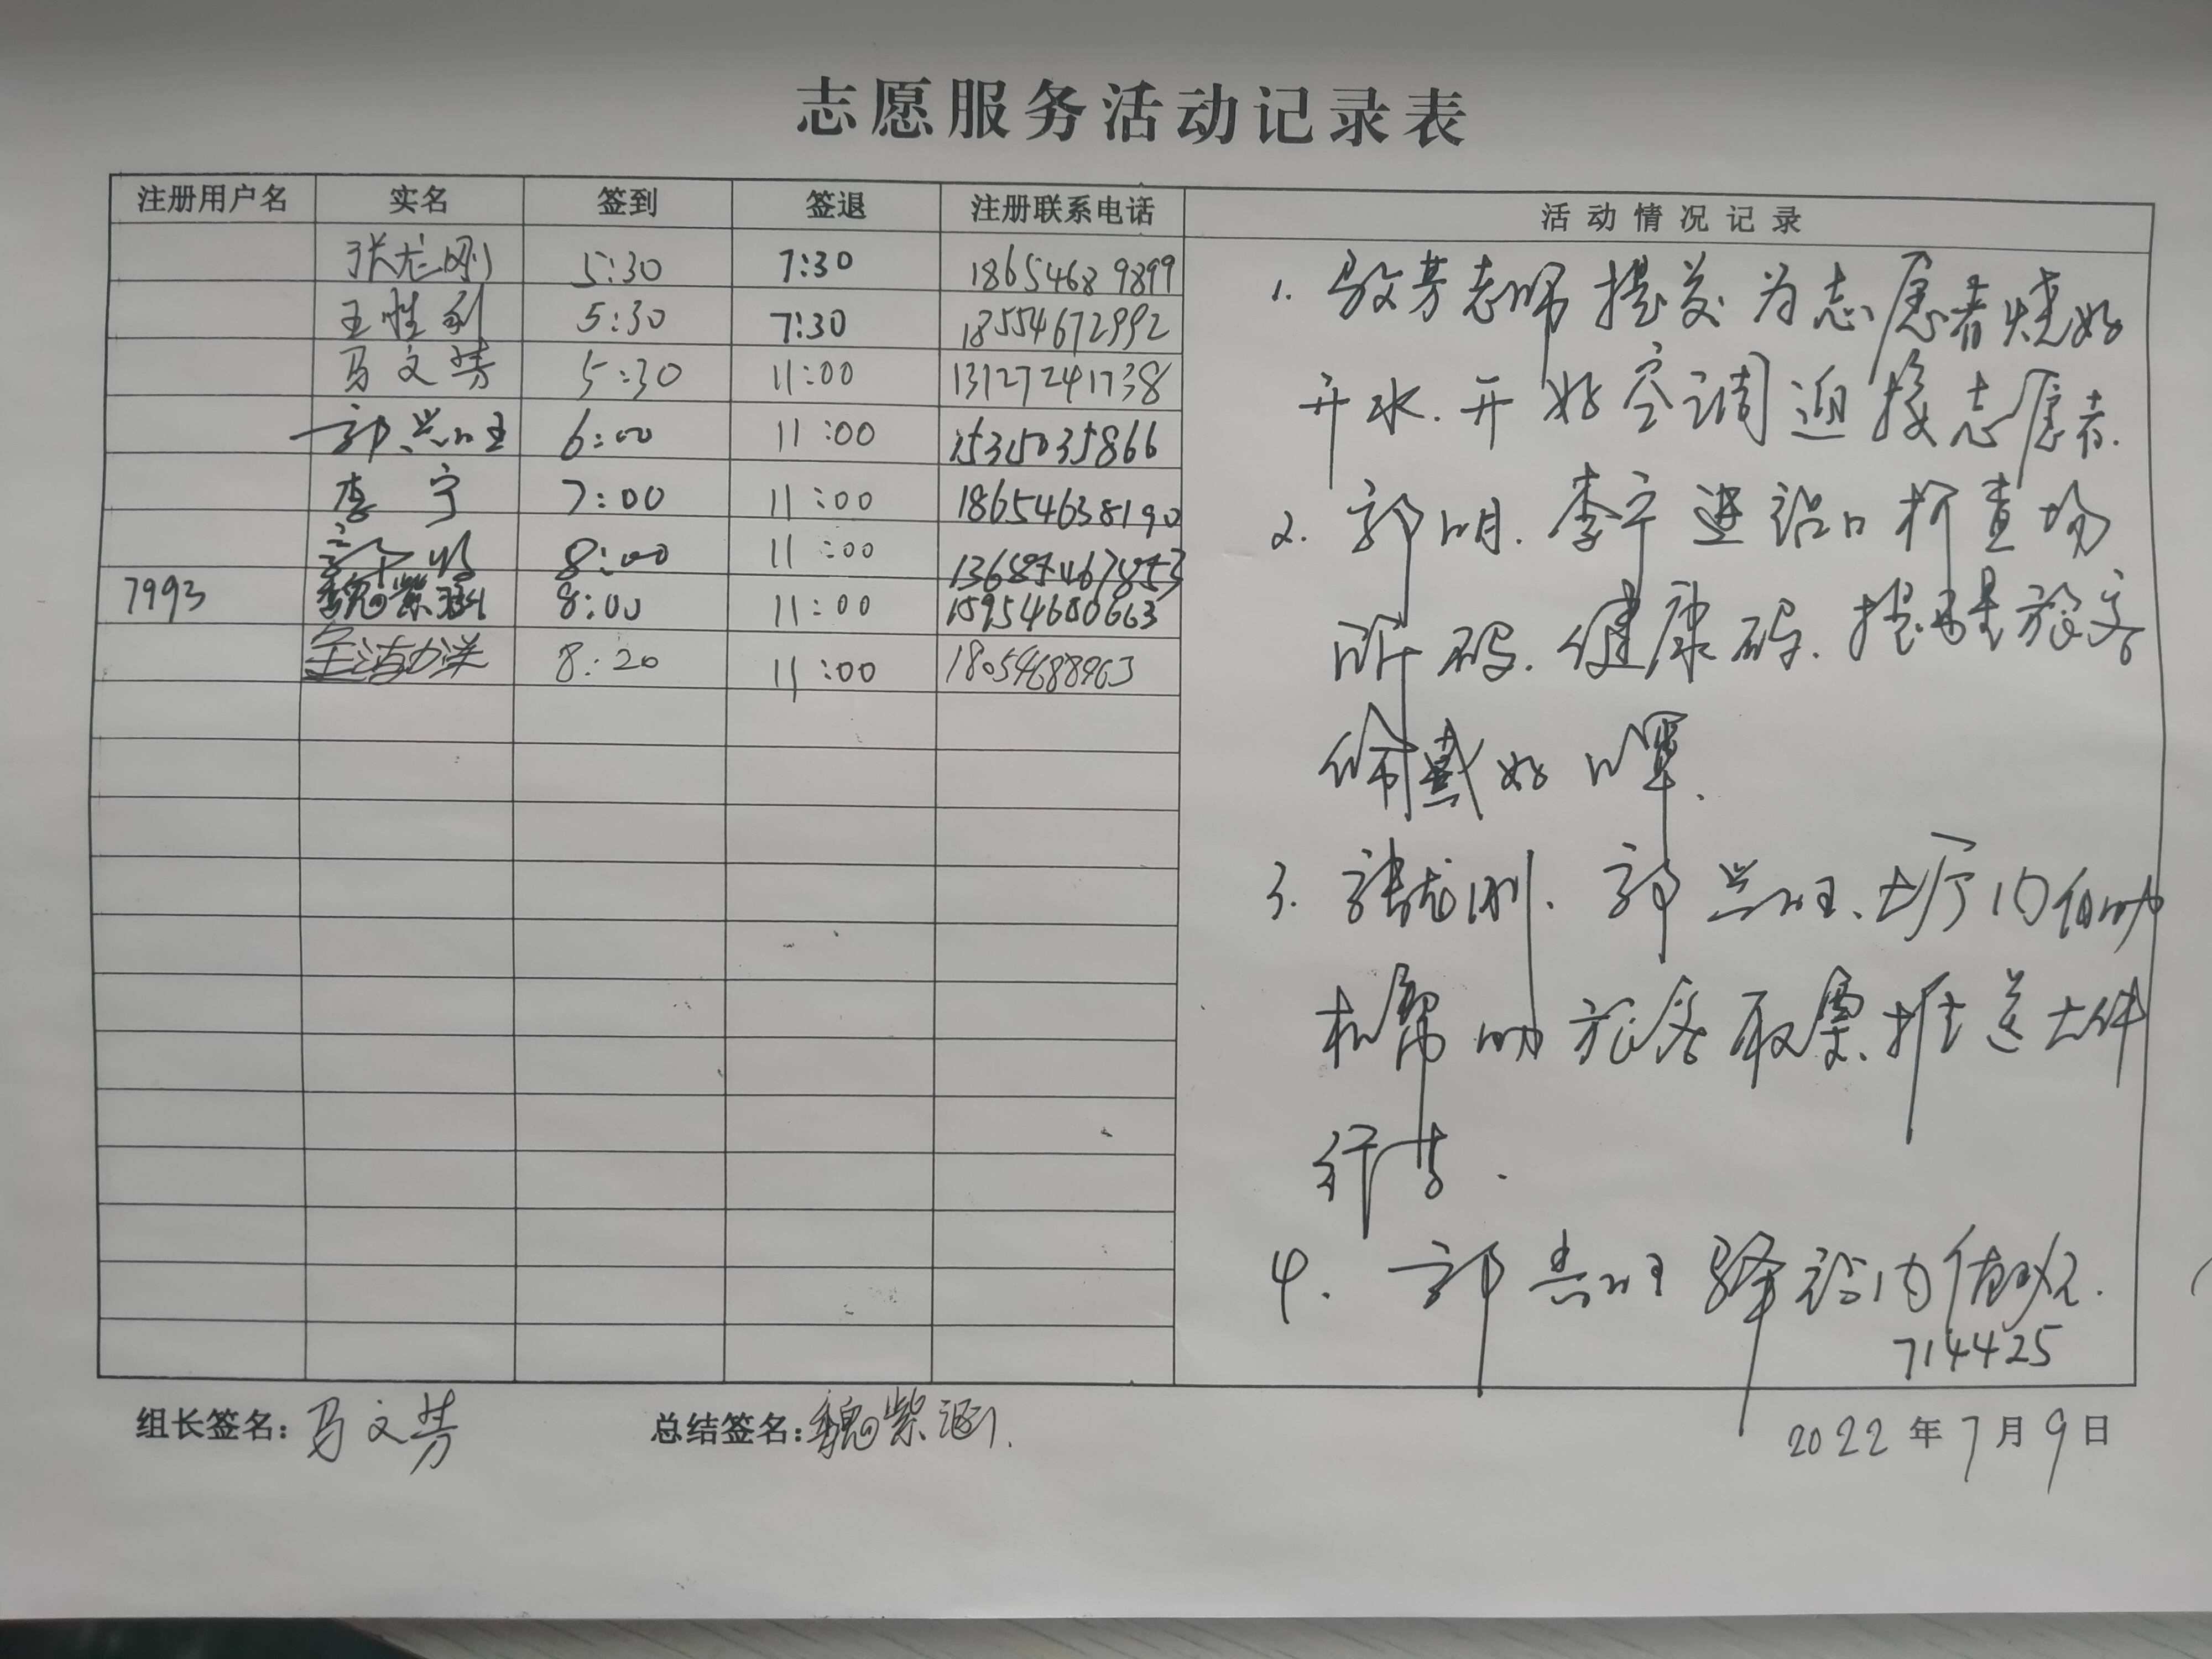 志愿服务活动记录表
注册用户名 实名 签到 签退 注册联系电话 活动情况记录
张龙刚 5:30 7:30 18654689899
5:30 7:30 18554672992
马文芳 5:30 11:00 13127241738
郭兴旺 6:00 11:00 15315035866
李宁 7:00 11:00 18654638190
8:00 11:00
7993 魏紫涵 8:00 11:00 15954680663
8:20 11:00 18054688963
1. 为志愿者烧好
开水.开好空调迎接志愿者.
2. 郭明.李宁进站口 查场
所码.健康码.提醒旅客
佩戴好口罩.
3. 张龙刚.郭兴旺、大厅内
帮助旅客取票、推送大件
行李.
4. 郭兴旺 驿站内值班.
714425
组长签名：马文芳 总结签名：魏紫涵. 2022年7月9日